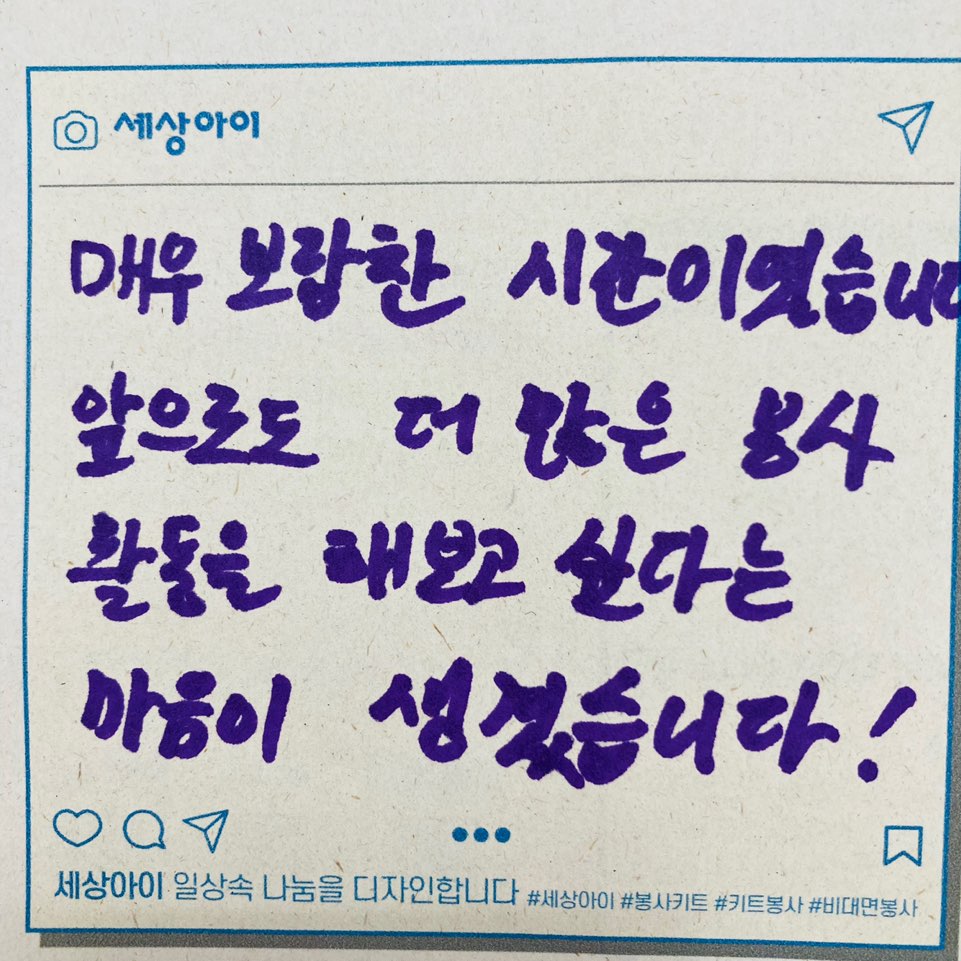 세상아이
매우 보람찬 시간이였습니다
앞으로도 더 많은 봉사
활동을 해보고 싶다는
마음이 생겼습니다!
세상아이 일상속 나눔을 디자인합니다 #세상아이 #봉사키트 #키트봉사 #비대면봉사